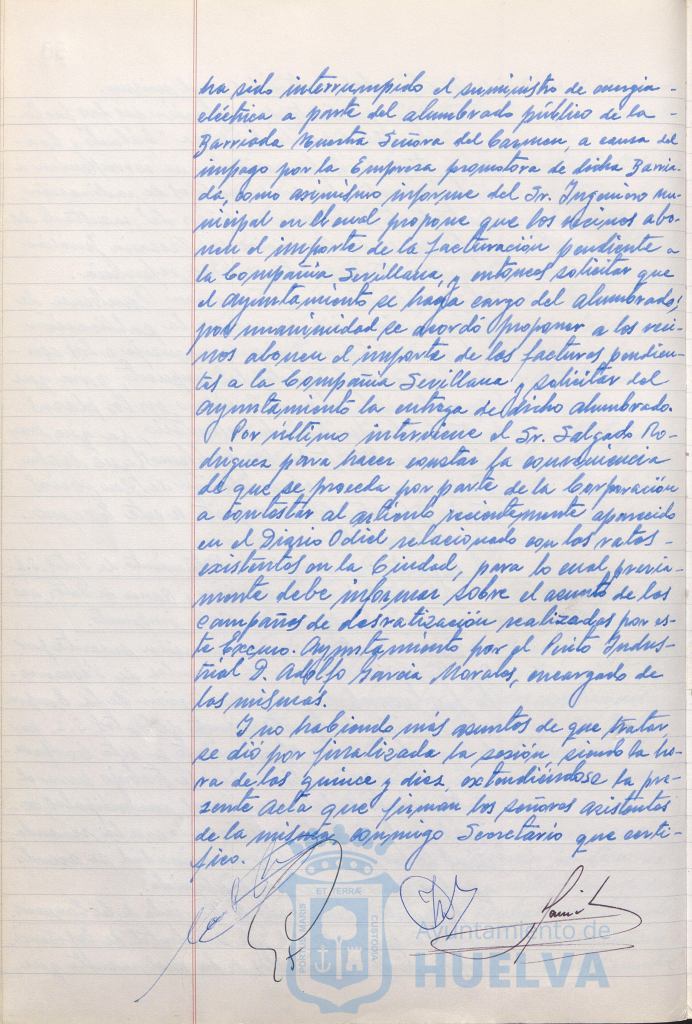 ha sido interrumpido el suministro de energia
eléctrica a parte del alumbrado público de la
Barriada Nuestra Señora del Carmen, a causa del
impago por la Empresa promotora de dicha Barria-
da, como asimismo informe del Sr. Ingeniero mu-
nicipal en el cual propone que los vecinos abo-
nen el importe de la facturación pendiente a
la Compañia Sevillana, y entonces solicitar que
el Ayuntamiento se haga cargo del alumbrado;
por unanimidad se acordó proponer a los veci-
nos abonen el importe de las facturas pendien-
tes a la Compañia Sevillana y solicitar del
Ayuntamiento la entrega de dicho alumbrado.
Por último interviene el Sr. Salgado Ro-
driguez para hacer constar la conveniencia
de que se proceda por parte de la Corporación
a contestar al artículo recientemente aparecido
en el Diario Odiel relacionado con las ratas
existentes en la Ciudad, para lo cual previa-
mente debe informar sobre el asunto de las
campañas de desratización realizadas por es-
te Excmo. Ayuntamiento por el Perito Indus-
trial D. Adolfo Garcia Morales, encargado de
las mismas.
Y no habiendo más asuntos de que tratar,
se dió por finalizada la sesión, siendo la ho-
ra de las quince y diez, extendiéndose la pre-
sente Acta que firman los señores asistentes
de la misma conmigo Secretario que certi-
fico.
ET TERRÆ
PORTUS MARIS
CUSTODIA
Ayuntamiento de
HUELVA